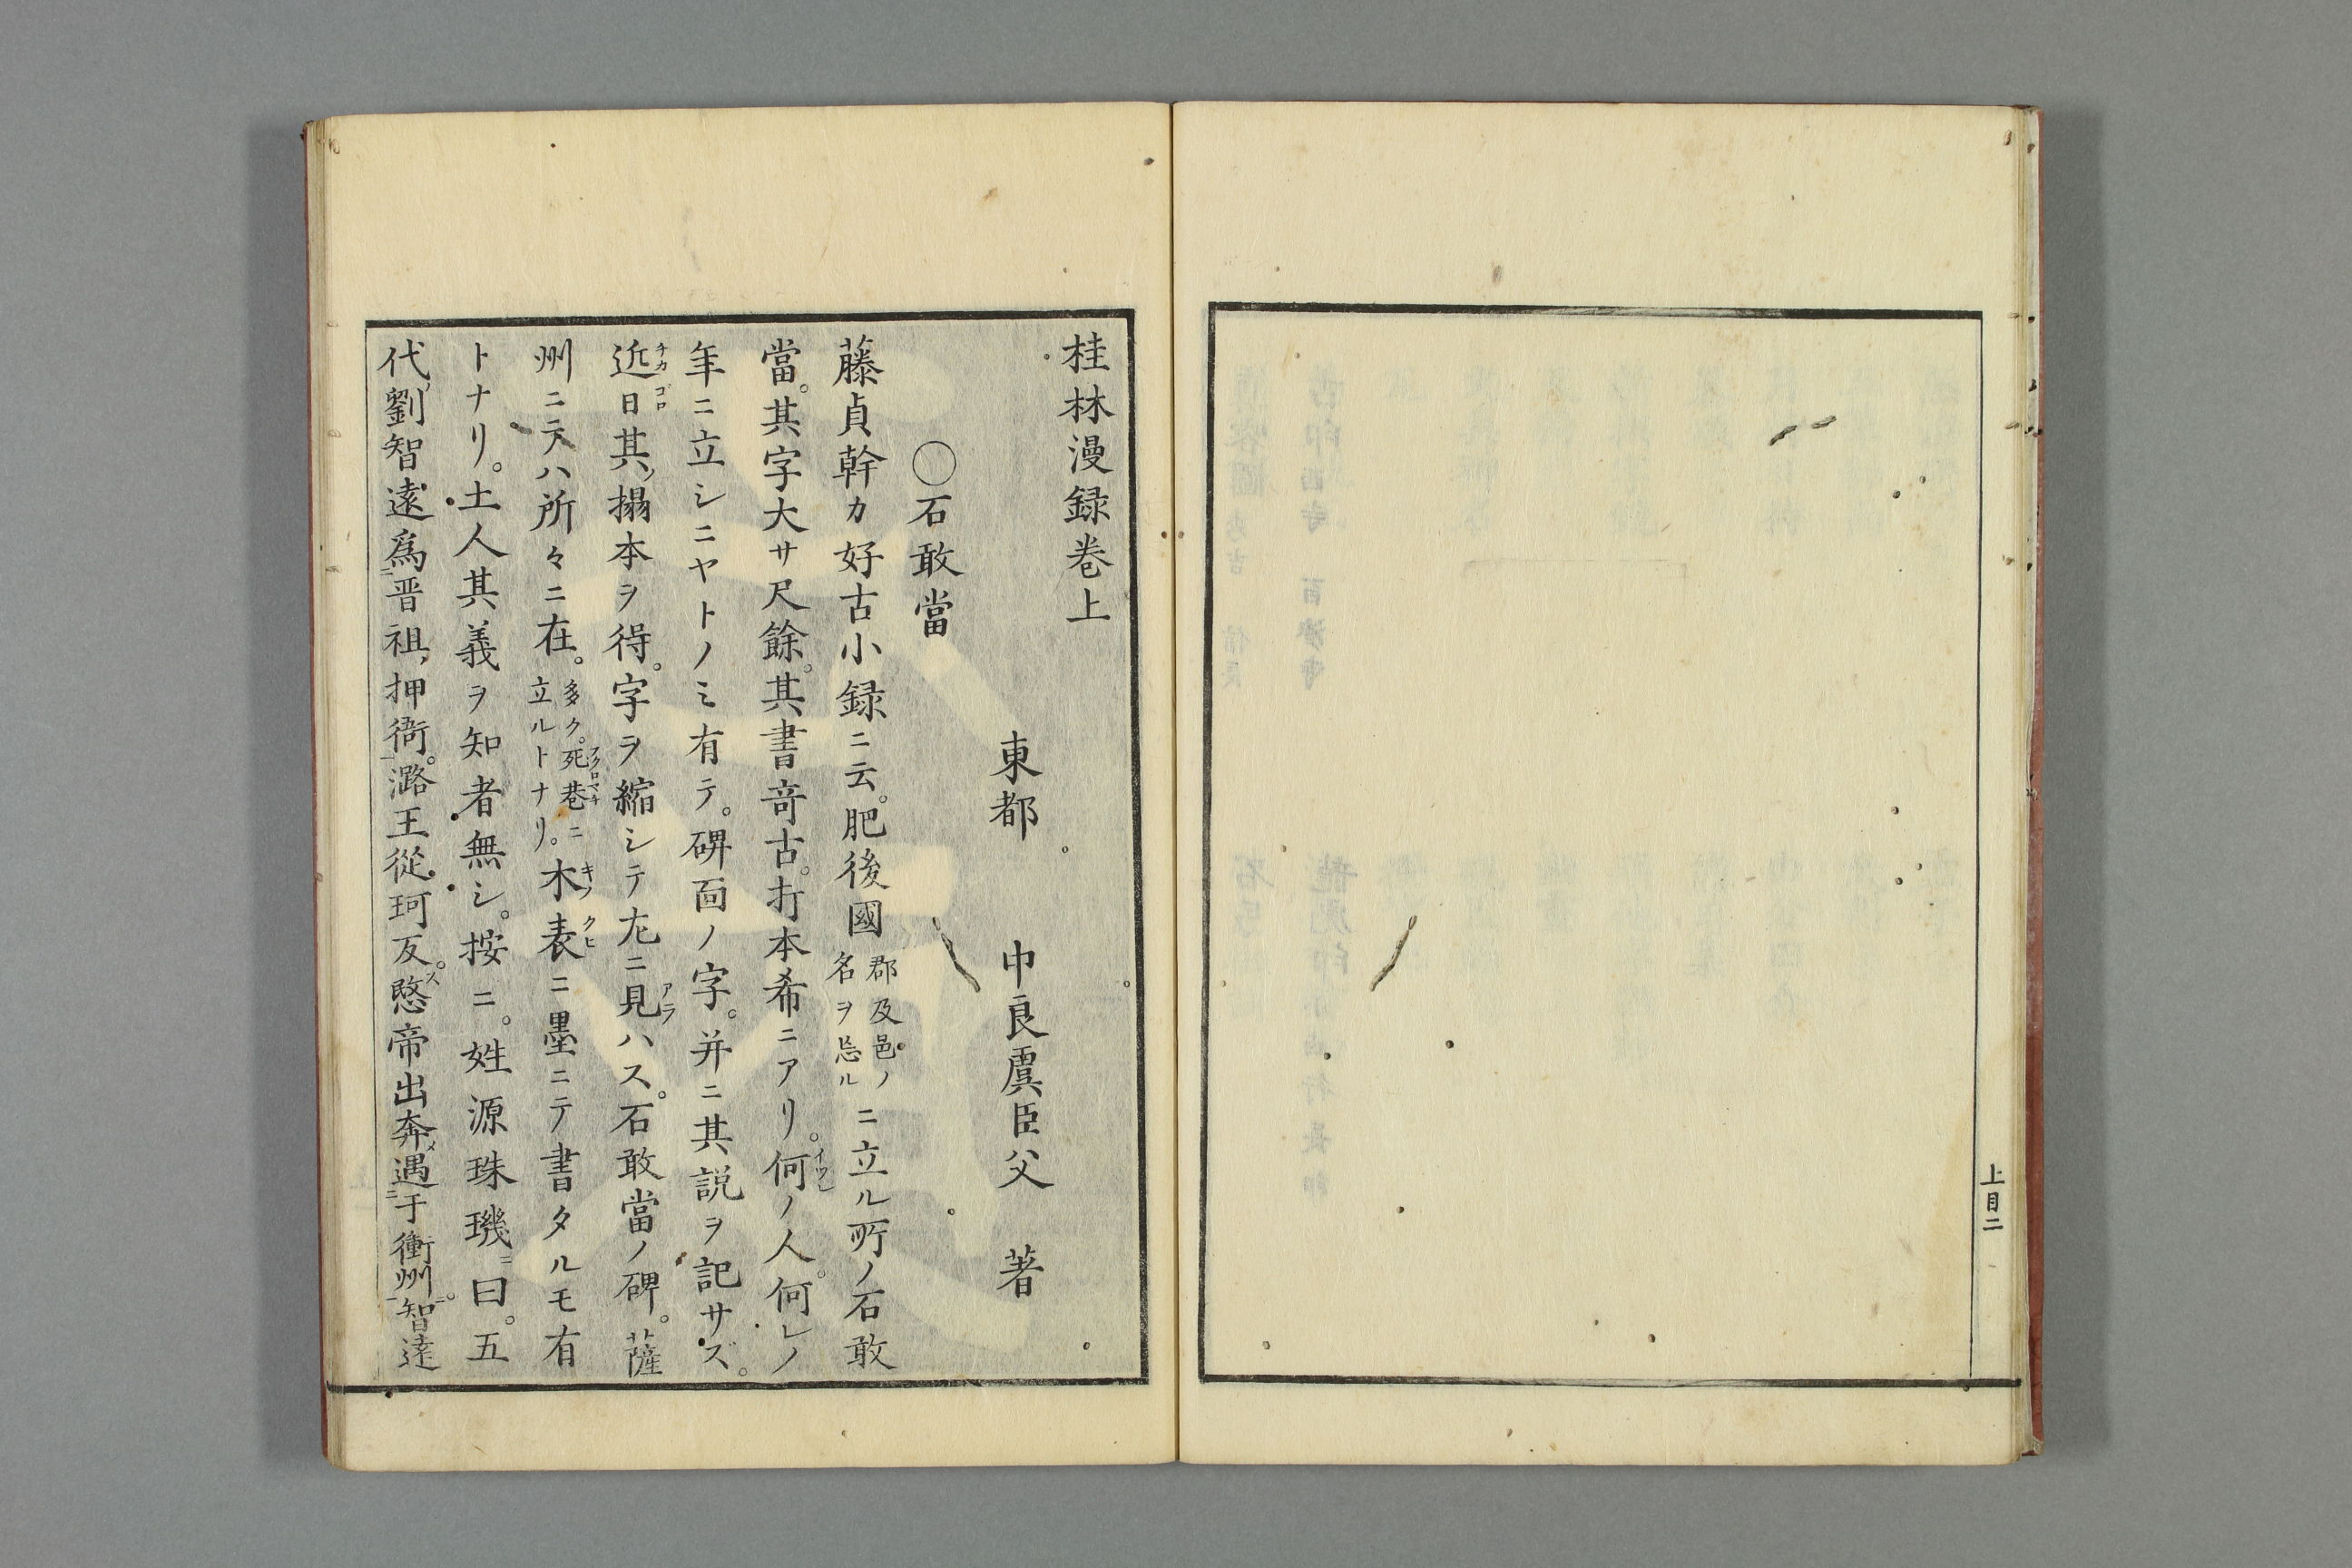 上目二
桂林漫録巻上
東都　中良虞臣父　著
〇石敢當
藤貞幹カ好古小録ニ云。肥後國郡及邑ノ名ヲ忘ルニ立ル所ノ石敢
當。其字大サ尺餘。其書竒古。打本希ニアリ。何ノ人。何レノ
年ニ立シニヤトノミ有テ。碑面ノ字。并ニ其説ヲ記サズ。
近日其搨本ヲ得。字ヲ縮シテ左ニ見ハス。石敢當ノ碑。薩
州ニテハ所々ニ在。多ク。死巷ニ立ルトナリ。木表ニ墨ニテ書タルモ有
トナリ。土人其義ヲ知者無シ。按ニ。姓源珠璣ニ曰。五
代劉智遠爲晋祖押衙。潞王從珂反。愍帝出奔遇于衝州。智遠